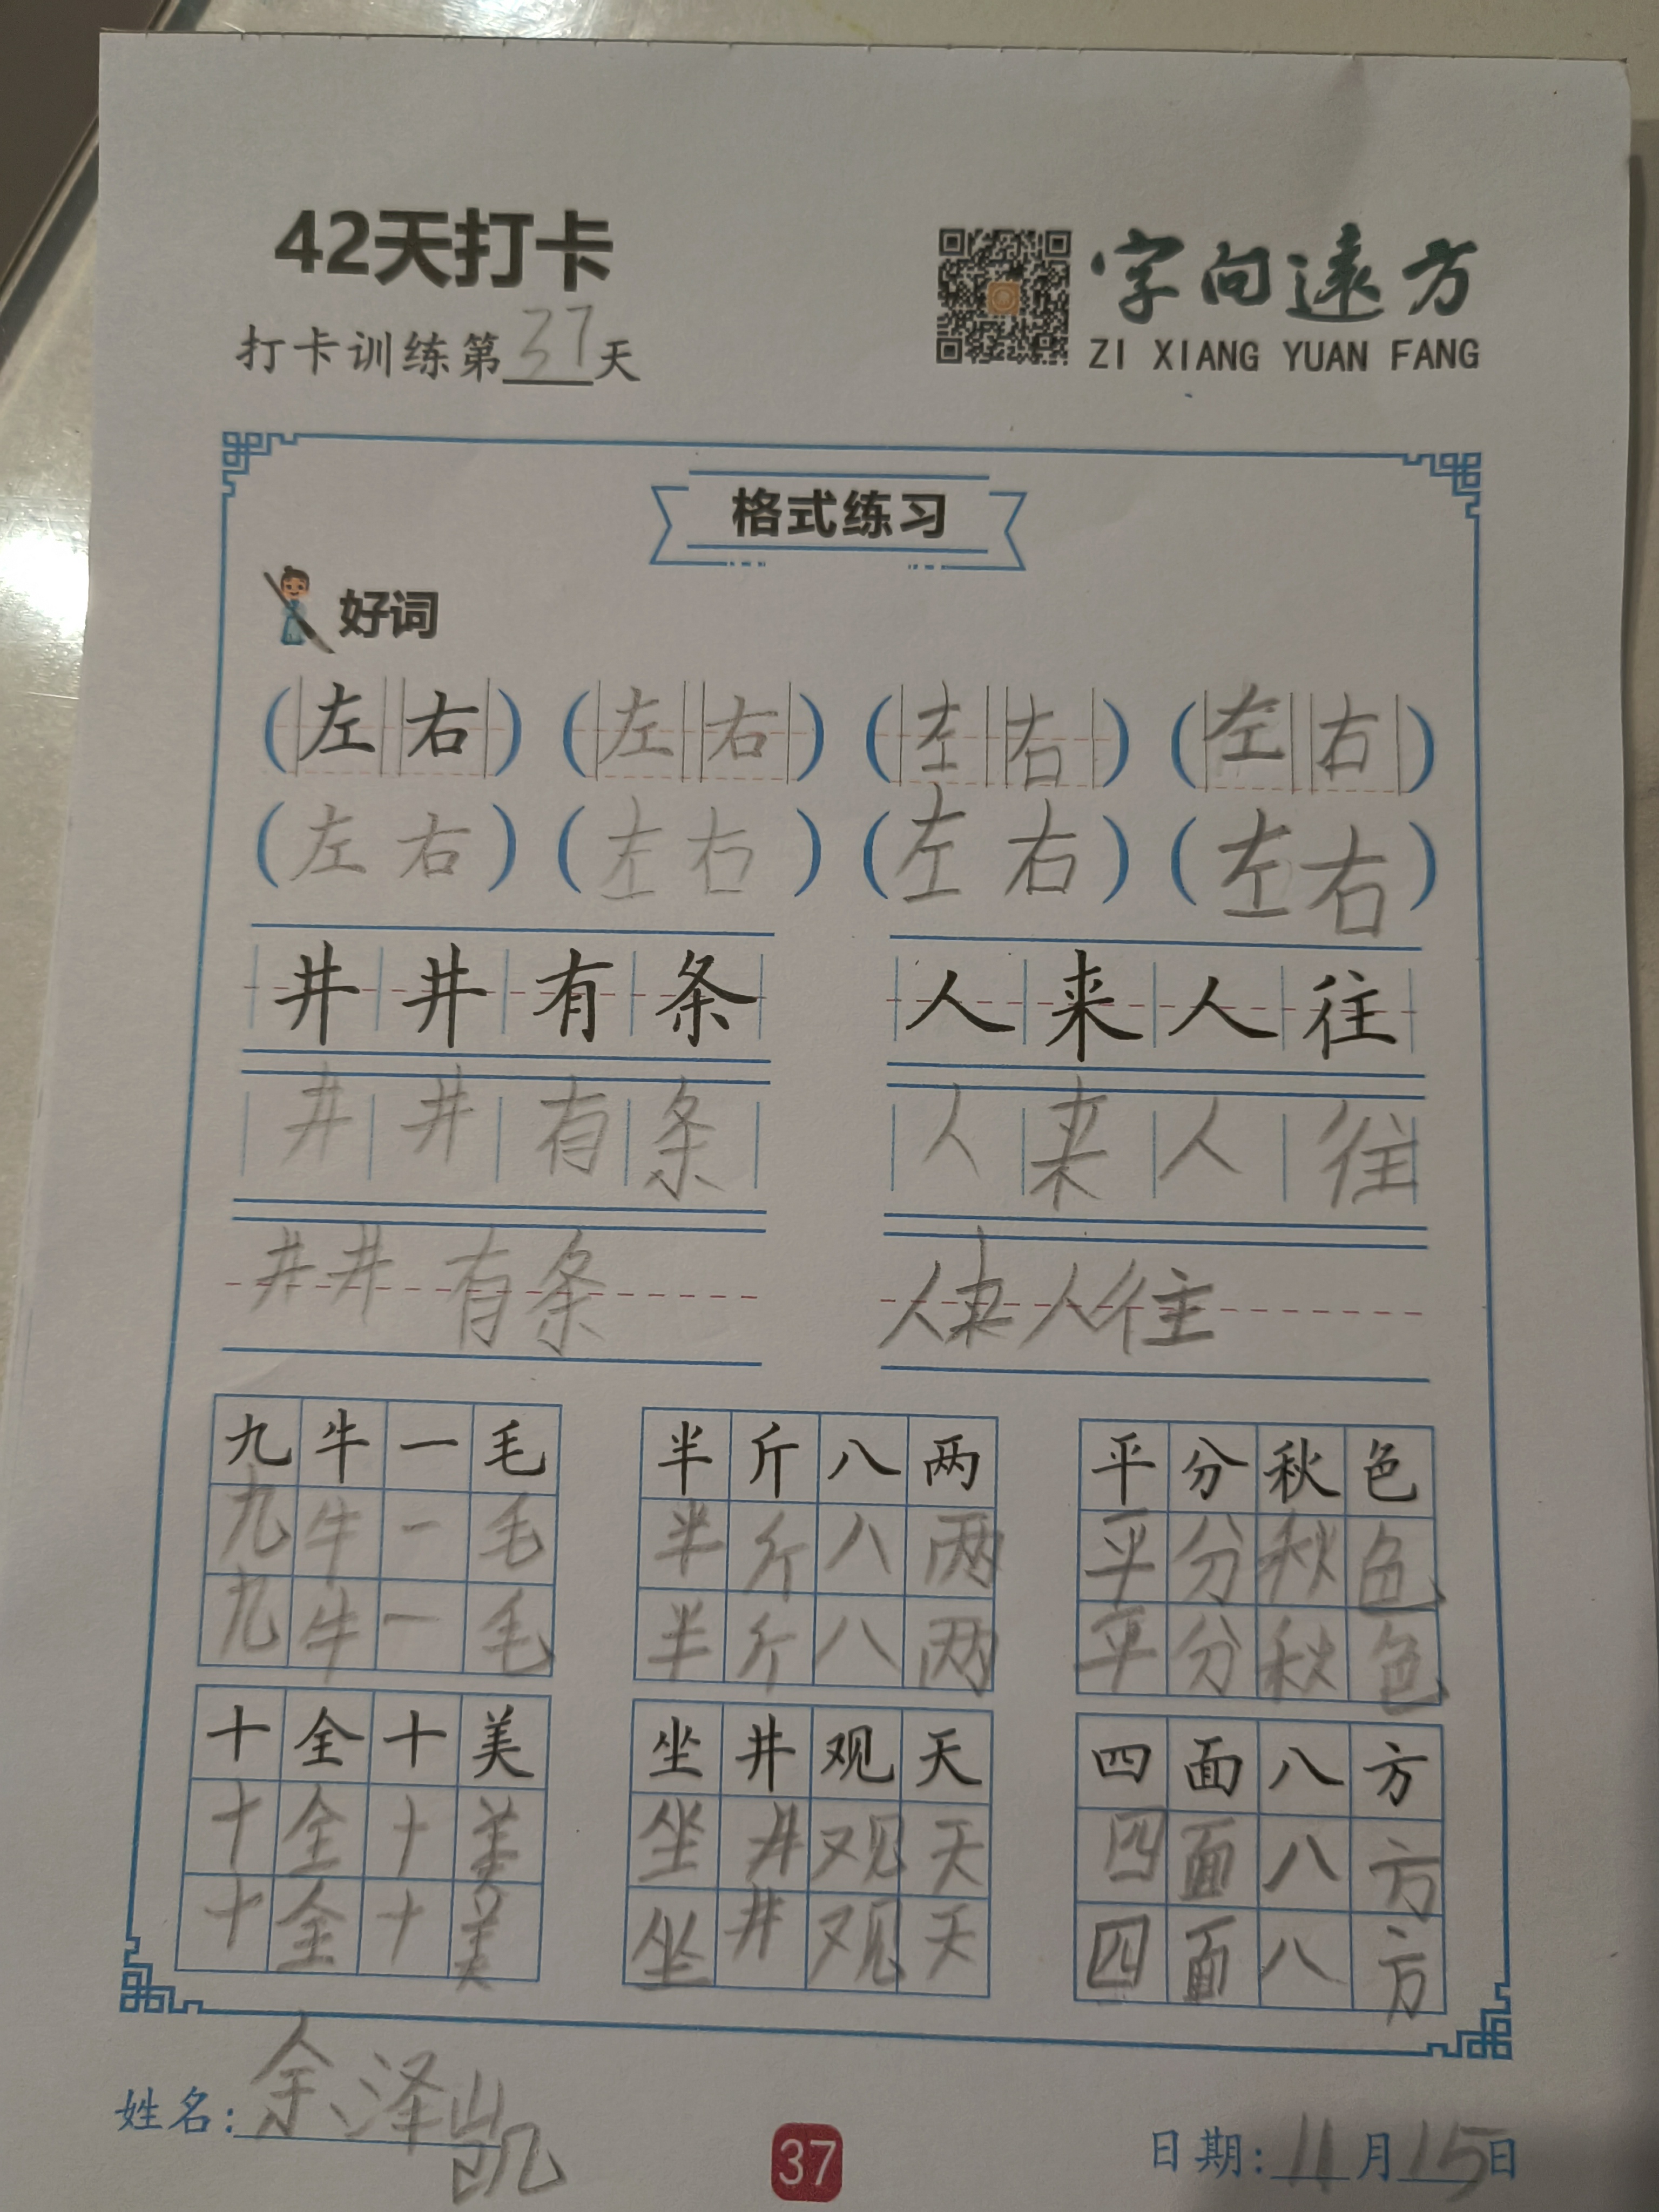 42天打卡
打卡训练第37天
字向遠方
ZI XIANG YUAN FANG
格式练习
好词
(左右) (左右) (左右) (左右)
(左右) (左右) (左右) (左右)
井井有条 人来人往
井井有条 人来人往
井井有条 人来人往
九牛一毛 半斤八两 平分秋色
九牛一毛 半斤八两 平分秋色
九牛一毛 半斤八两 平分秋色
十全十美 坐井观天 四面八方
十全十美 坐井观天 四面八方
十全十美 坐井观天 四面八方
姓名:余泽凯
37
日期:11月15日